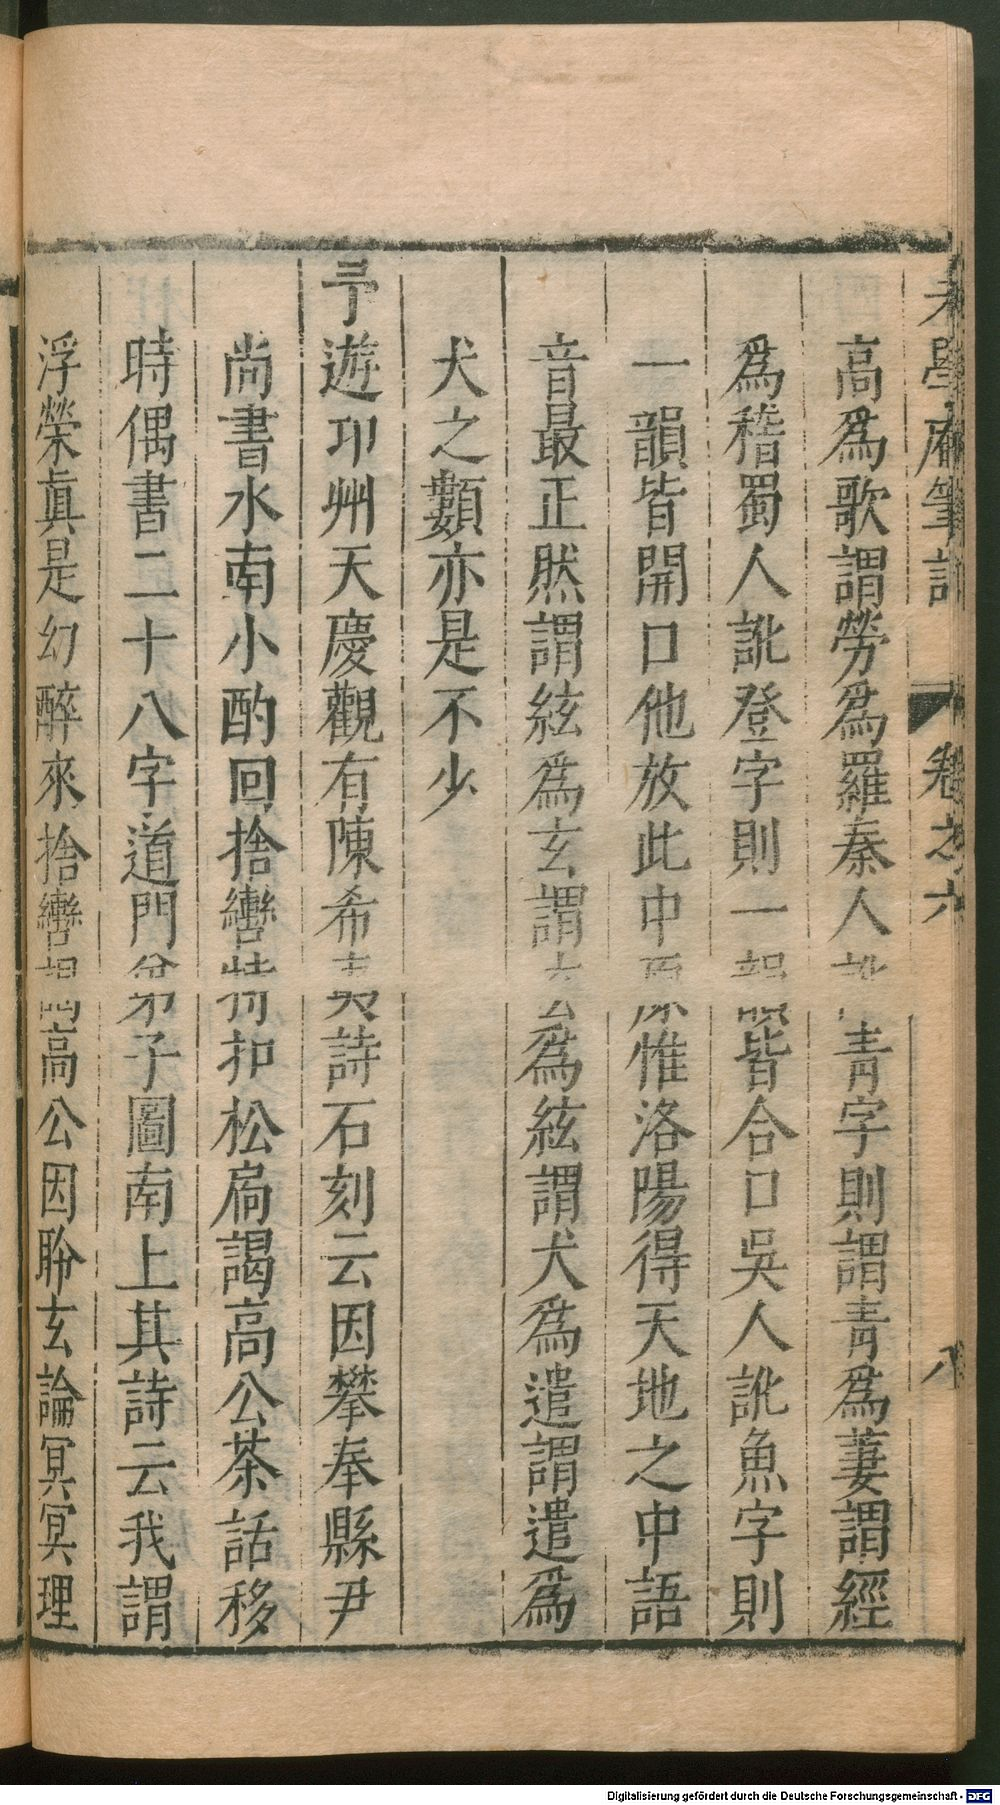 老學庵筆記 卷之六 八
高爲歌謂勞爲羅秦人訛青字則謂青爲萋謂經
爲稽蜀人訛登字則一韻皆合口吳人訛魚字則
一韻皆開口他放此中原惟洛陽得天地之中語
音最正然謂絃爲玄謂玄爲絃謂犬爲遣謂遣爲
犬之類亦是不少
予遊邛州天慶觀有陳希夷詩石刻云因攀奉縣尹
尚書水南小酌回捨轡特扣松扃謁高公茶話移
時偶書二十八字道門弟子圖南上其詩云我謂
浮榮真是幻醉來捨轡謁高公因聆玄論冥冥理
Digitalisierung gefördert durch die Deutsche Forschungsgemeinschaft - DFG